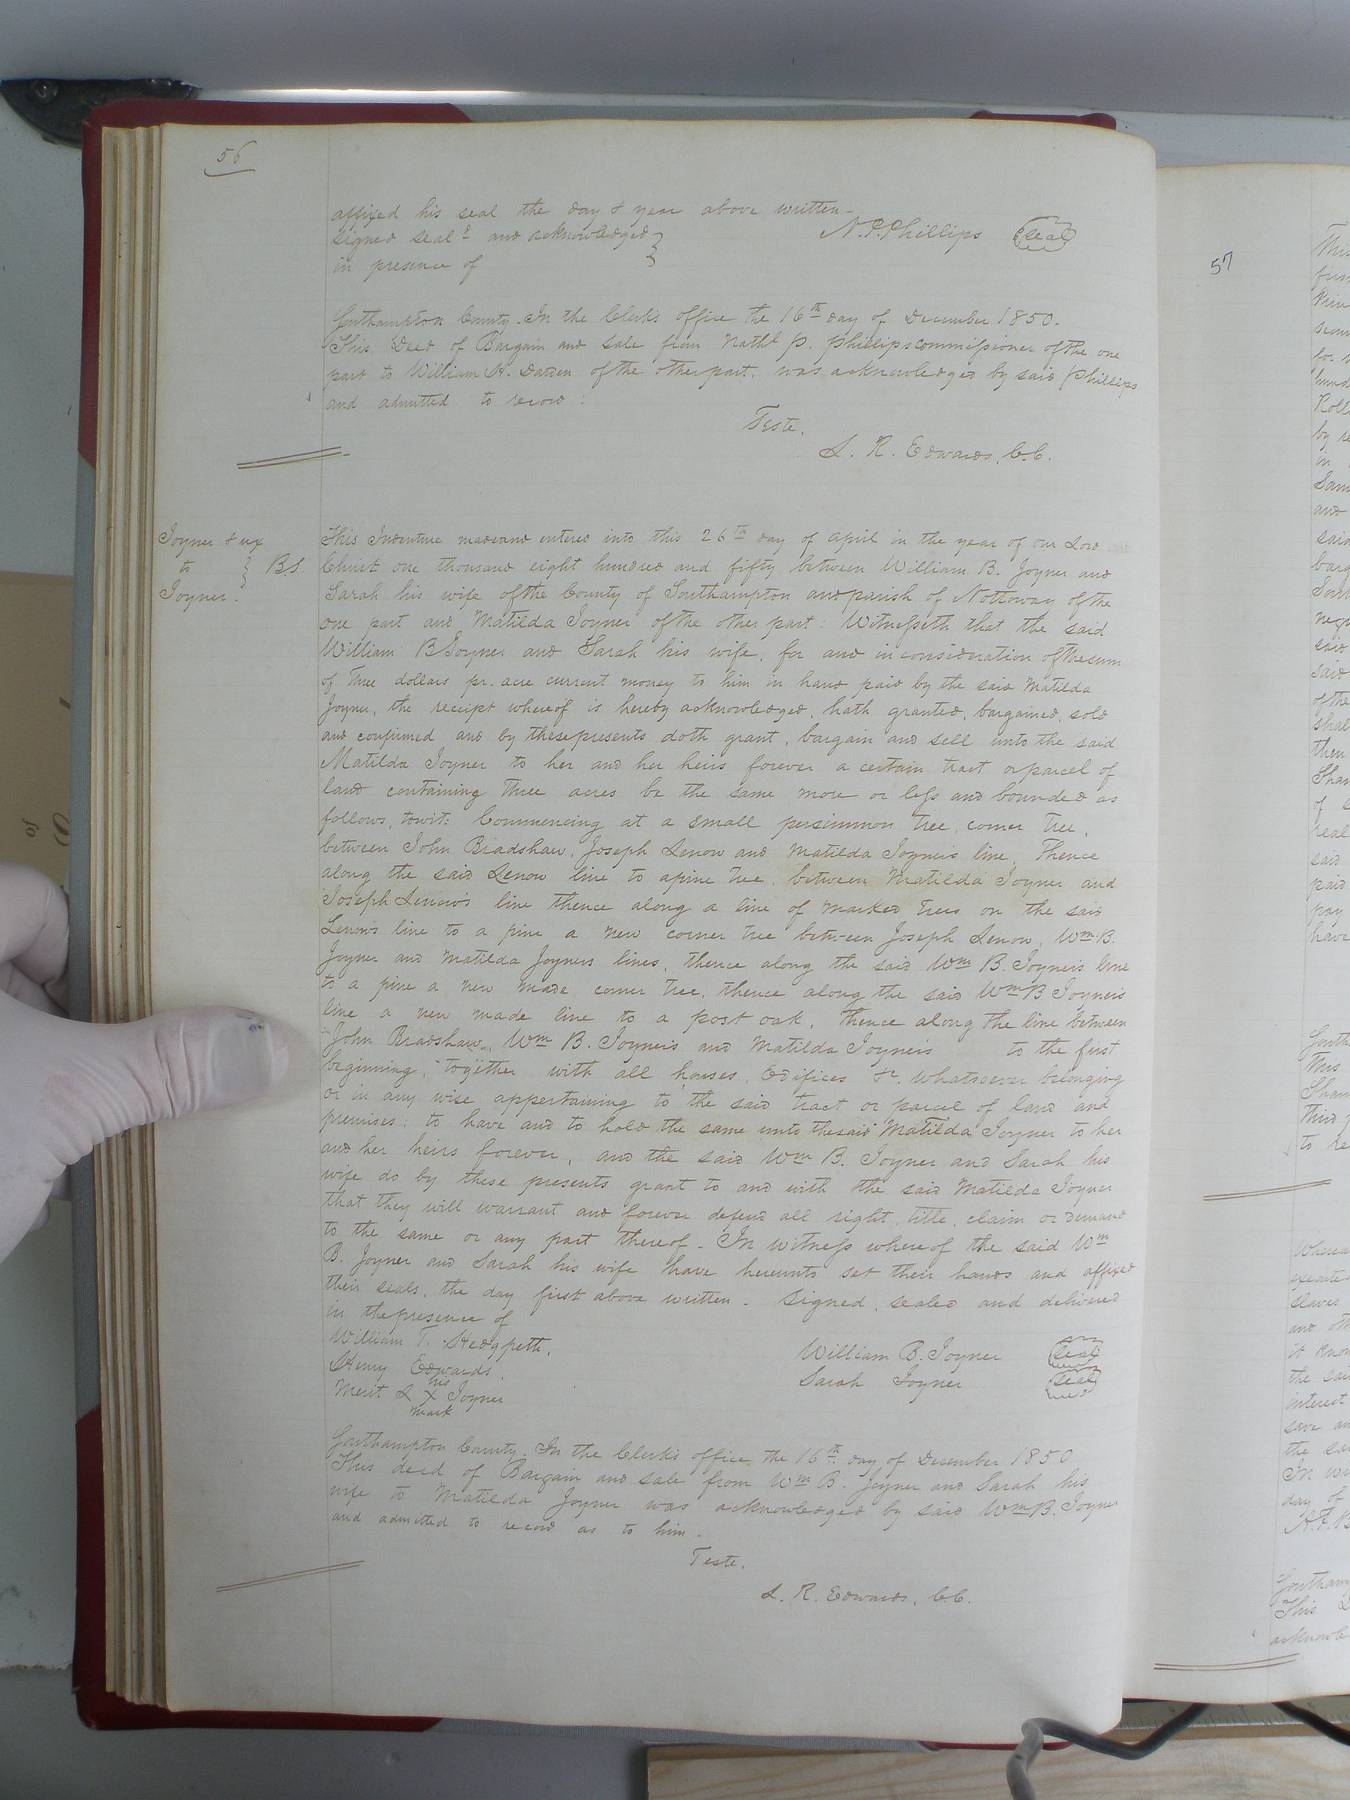 56
affixed his seal the day & year above written
signed seald and acknowledged } N. P. Phillips (Seal)
in presence of
Southampton County. In the Clerks office the 16th day of December 1850.
This Deed of Bargain and sale from Nathl P. Phillips commissioner of the one
part to William H. Darden of the other part. was acknowledged by said Phillips
and admitted to record:
Teste,
L. R. Edwards, C.C.
Joyner & ux
to } B.S.
Joyner.
This Indenture made and entered into this 26th day of April in the year of our Lord
Christ one thousand eight hundred and fifty between William B. Joyner and
Sarah his wife of the County of Southampton and parish of Nottoway of the
one part and Matilda Joyner of the other part: Witnesseth that the said
William B Joyner and Sarah his wife, for and in consideration of the sum
of Three dollars pr. acre current money to him in hand paid by the said Matilda
Joyner, the receipt whereof is hereby acknowledged, hath granted, bargained, sold
and confirmed and by these presents doth grant, bargain and sell unto the said
Matilda Joyner to her and her heirs forever a certain tract or parcel of
land containing Three acres be the same more or less and bounded as
follows, towit: Commencing at a small persimmon tree, corner tree,
between John Bradshaw, Joseph Lenow and Matilda Joyner's line, Thence
along the said Lenow line to a pine tree, between Matilda Joyner and
Joseph Lenow's line thence along a line of marked trees on the said
Lenow's line to a pine a new corner tree between Joseph Lenow, Wm. B.
Joyner and Matilda Joyners lines, thence along the said Wm B. Joyner's line
to a pine a new made corner tree, thence along the said Wm B Joyner's
line a new made line to a post oak, Thence along the line between
John Bradshaw, Wm B. Joyner's and Matilda Joyner's to the first
beginning, together with all houses, Edifices &c. whatsoever belonging
or in any wise appertaining to the said tract or parcel of land and
premises: to have and to hold the same unto the said Matilda Joyner to her
and her heirs forever, and the said Wm B. Joyner and Sarah his
wife do by these presents grant to and with the said Matilda Joyner
that they will warrant and forever defend all right, title, claim or demand
to the same or any part thereof. In witness whereof the said Wm
B. Joyner and Sarah his wife have hereunto set their hands and affixed
their seals, the day first above written. Signed, sealed and delivered
in the presence of
William T. Hedgpeth, William B. Joyner (Seal)
Henry Edwards. Sarah Joyner (Seal)
his
Merit L X Joyner
mark
Southampton County. In the Clerk's office the 16th day of December 1850
This deed of Bargain and sale from Wm B. Joyner and Sarah his
wife to Matilda Joyner was acknowledged by said Wm B. Joyner
and admitted to record as to him.
Teste,
L. R. Edwards, C.C.
57